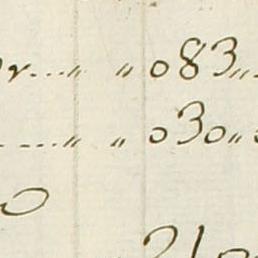 r...〃 〃 083〃
....〃 〃 030〃
0
2